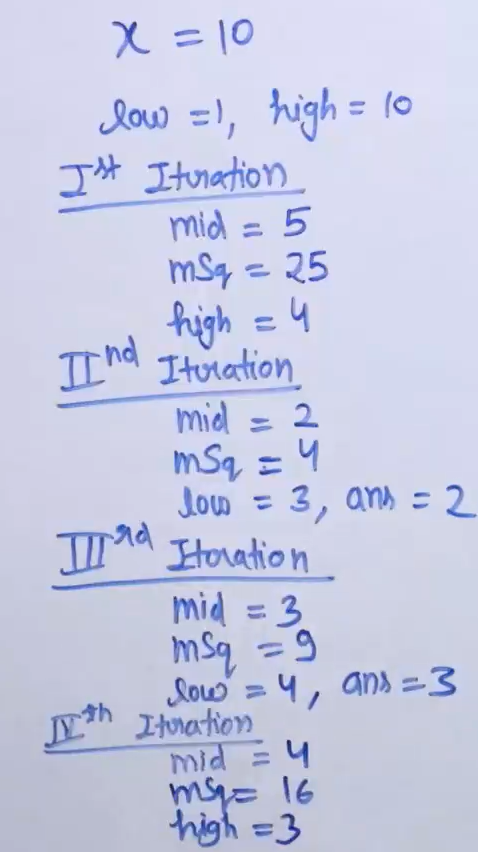 x = 10
low = 1, high = 10
Ist Itration
mid = 5
mSq = 25
high = 4
IInd Itration
mid = 2
mSq = 4
low = 3, ans = 2
IIIrd Itoration
mid = 3
mSq = 9
low = 4, ans = 3
IVth Itration
mid = 4
mSq = 16
high = 3